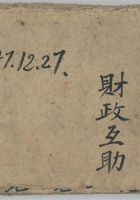 7.12.27.
財政互助